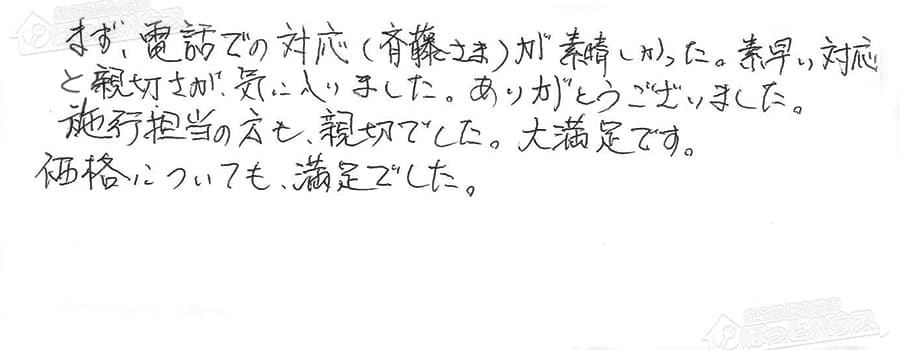 まず、電話での対応(斉藤さま)が素晴しかった。素早い対応
と親切さが、気に入りました。ありがとうございました。
施行担当の方も、親切でした。大満足です。
価格についても、満足でした。